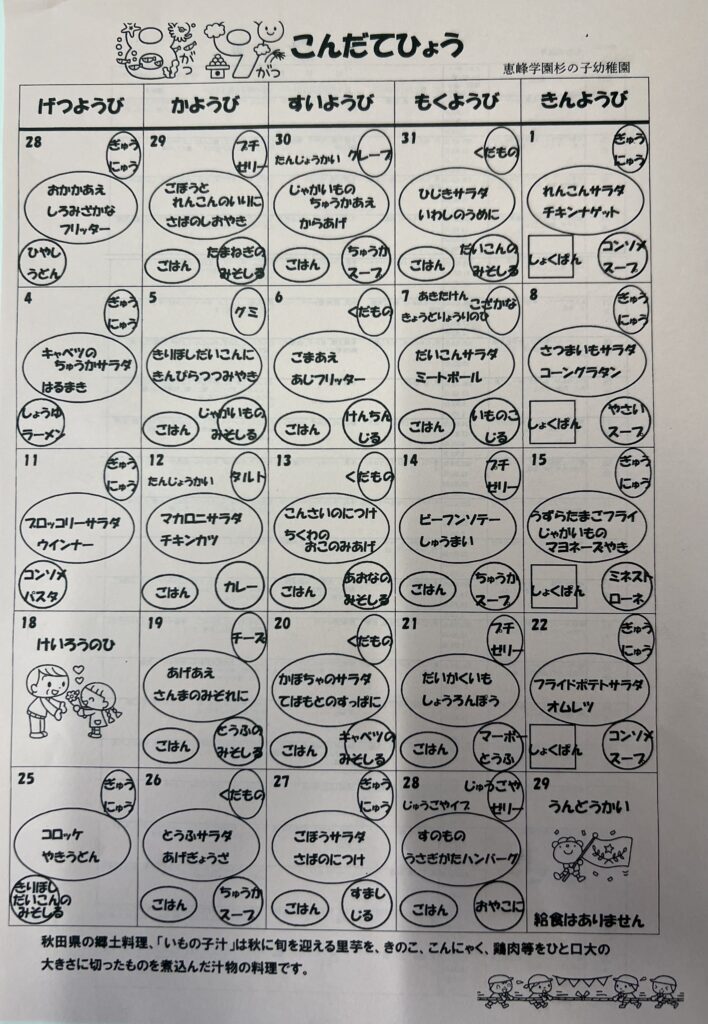 8がつ 9がつ こんだてひょう
恵峰学園杉の子幼稚園
げつようび かようび すいようび もくようび きんようび
28
ぎゅう
にゅう
おかかあえ
しろみざかな
フリッター
ひやし
うどん
29
プチ
ゼリー
ごぼうと
れんこんのいりに
さばのしおやき
ごはん
たまねぎの
みそしる
30
たんじょうかい
クレープ
じゃがいもの
ちゅうかあえ
からあげ
ごはん
ちゅうか
スープ
31
くだもの
ひじきサラダ
いわしのうめに
ごはん
だいこんの
みそしる
1
ぎゅう
にゅう
れんこんサラダ
チキンナゲット
しょくぱん
コンソメ
スープ
4
ぎゅう
にゅう
キャベツの
ちゅうかサラダ
はるまき
しょうゆ
ラーメン
5
グミ
きりぼしだいこんに
きんぴらつつみやき
ごはん
じゃがいもの
みそしる
6
くだもの
ごまあえ
あじフリッター
ごはん
けんちん
じる
7
あきたけん
きょうどりょうりのひ
こざかな
だいこんサラダ
ミートボール
ごはん
いものこ
じる
8
ぎゅう
にゅう
さつまいもサラダ
コーングラタン
しょくぱん
やさい
スープ
11
ぎゅう
にゅう
ブロッコリーサラダ
ウインナー
コンソメ
パスタ
12
たんじょうかい
タルト
マカロニサラダ
チキンカツ
ごはん
カレー
13
くだもの
こんさいのにつけ
ちくわの
おこのみあげ
ごはん
あおなの
みそしる
14
プチ
ゼリー
ビーフンソテー
しゅうまい
ごはん
ちゅうか
スープ
15
ぎゅう
にゅう
うずらたまごフライ
じゃがいもの
マヨネーズやき
しょくぱん
ミネスト
ローネ
18
けいろうのひ
19
チーズ
あげあえ
さんまのみぞれに
ごはん
とうふの
みそしる
20
くだもの
かぼちゃのサラダ
てばもとのすっぱに
ごはん
キャベツの
みそしる
21
プチ
ゼリー
だいがくいも
しょうろんぽう
ごはん
マーボー
とうふ
22
ぎゅう
にゅう
フライドポテトサラダ
オムレツ
しょくぱん
コンソメ
スープ
25
ぎゅう
にゅう
コロッケ
やきうどん
きりぼし
だいこんの
みそしる
26
くだもの
とうふサラダ
あげぎょうざ
ごはん
ちゅうか
スープ
27
ぎゅう
にゅう
ごぼうサラダ
さばのにつけ
ごはん
すまし
じる
28
じゅうごやイブ
じゅうごや
ゼリー
すのもの
うさぎがたハンバーグ
ごはん
おやこに
29
うんどうかい
給食はありません
秋田県の郷土料理、「いもの子汁」は秋に旬を迎える里芋を、きのこ、こんにゃく、鶏肉等をひと口大の
大きさに切ったものを煮込んだ汁物の料理です。